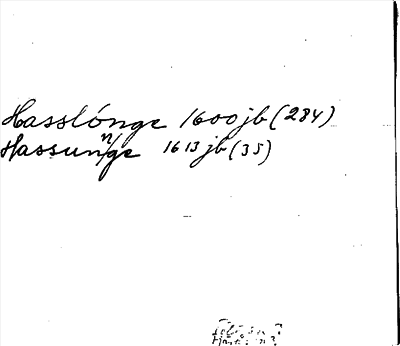 Hasslónge 1600 jb (284)
Hassunge 1613 jb (35)